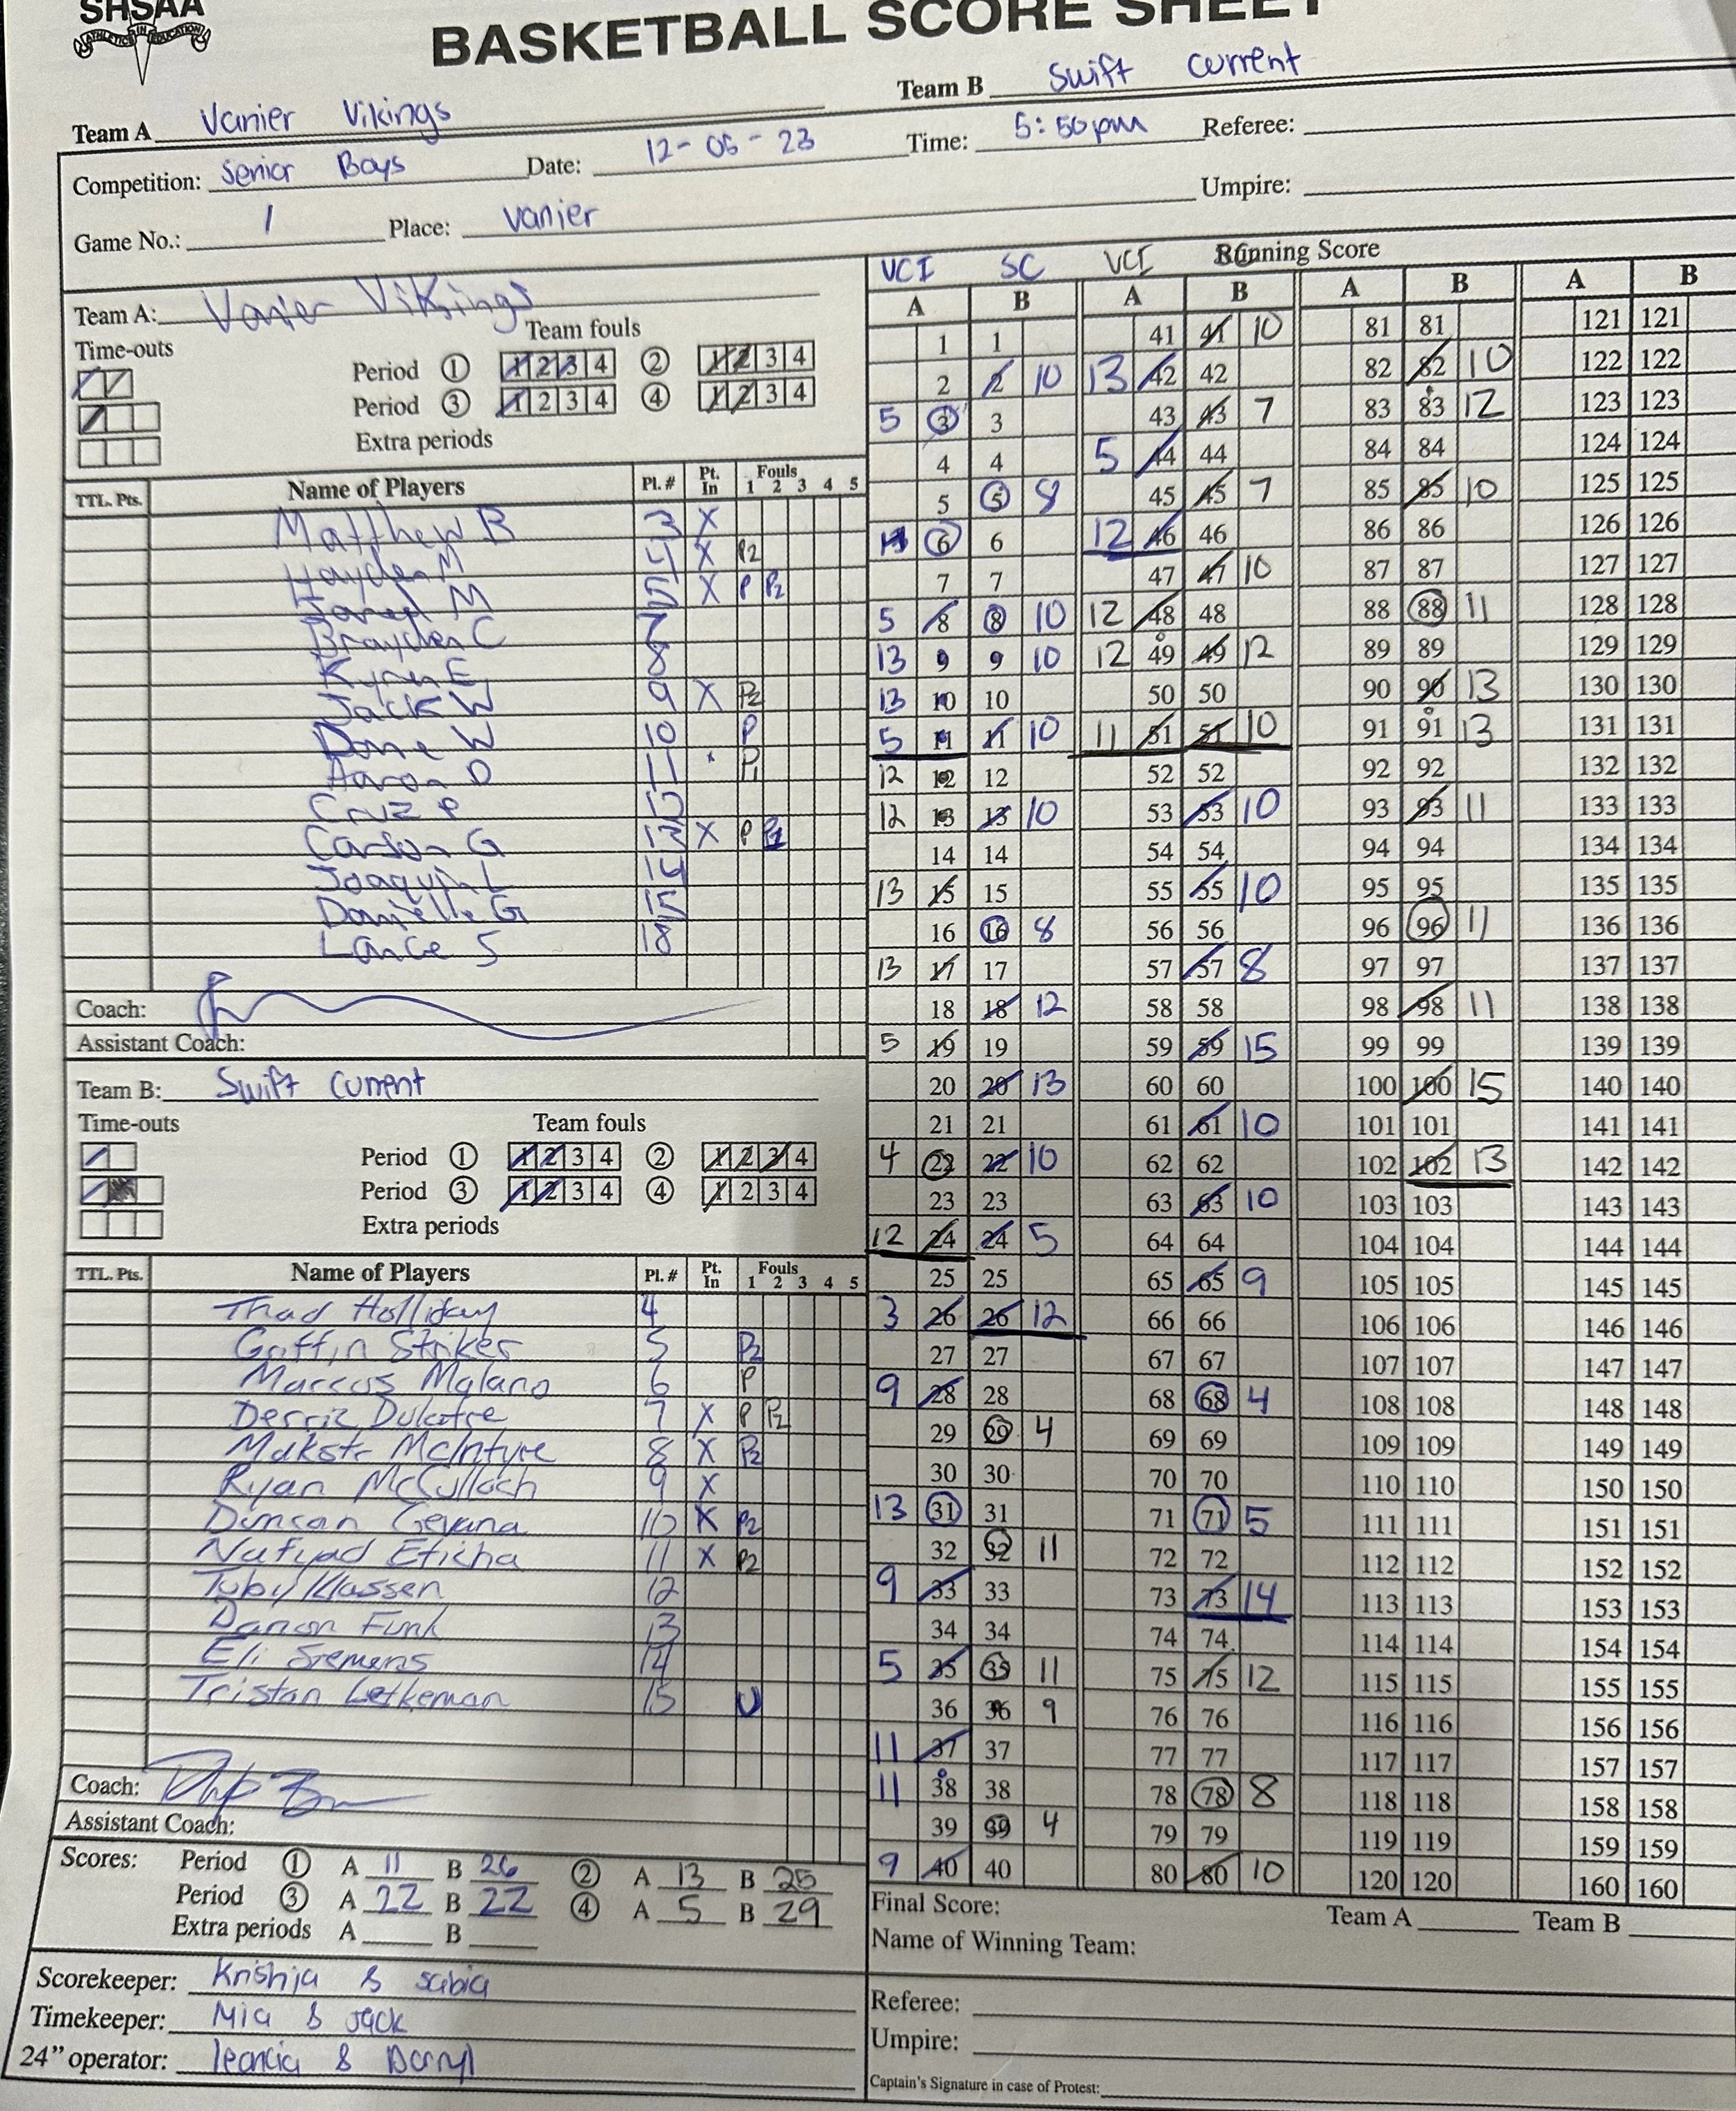 SHSAA
ATHLETICS IN EDUCATION
BASKETBALL SCORE SHEET
Team A Vanier Vikings Team B Swift Current
Competition: Senior Boys Date: 12-05-23 Time: 5:50pm Referee:
Game No.: 1 Place: Vanier Umpire:
Team A: Vanier Vikings
Time-outs Team fouls
Period 1 1 2 3 4 2 1 2 3 4
Period 3 1 2 3 4 4 1 2 3 4
Extra periods
TTL. Pts. Name of Players Pl. # Pt. In Fouls 1 2 3 4 5
Matthew B 3 X
Hayden M 4 X P2
Jared M 5 X P P2
Brayden C 7
Kyan E 8
Jack W 9 X P2
Dane W 10 P
Aaron D 11 P1
Cruz P 12
Carson G 13 X P
Joaquin L 14
Danielle G 15
Lance S 18
Coach:
Assistant Coach:
Team B: Swift Current
Time-outs Team fouls
Period 1 1 2 3 4 2 1 2 3 4
Period 3 1 2 3 4 4 1 2 3 4
Extra periods
TTL. Pts. Name of Players Pl. # Pt. In Fouls 1 2 3 4 5
Thad Holliday 4
Griffin Striker 5 P2
Marcus Malano 6 P
7 X P P2
McIntyre 8 X P2
Ryan McCulloch 9 X
10 X P2
Nafyad Eticha 11 X P2
Toby Klassen 12
Danon Funk 13
Eli Siemens 14
Tristan Letkeman 15 U
Coach:
Assistant Coach:
Scores: Period 1 A 11 B 26 2 A 13 B 25
Period 3 A 22 B 22 4 A 5 B 29
Extra periods A B
Scorekeeper: Krishia & Sabia
Timekeeper: Mia & Jack
24” operator: & Darryl
VCI SC VCI Running Score
A B A B A B A B
1 1 41 41 10 81 81 121 121
2 2 10 13 42 42 82 82 10 122 122
5 3 3 43 43 7 83 83 12 123 123
4 4 5 44 44 84 84 124 124
5 5 8 45 45 7 85 85 10 125 125
6 6 12 46 46 86 86 126 126
7 7 47 47 10 87 87 127 127
5 8 8 10 12 48 48 88 88 11 128 128
13 9 9 10 12 49 49 12 89 89 129 129
13 10 10 50 50 90 90 13 130 130
5 11 11 10 11 51 51 10 91 91 13 131 131
12 12 12 52 52 92 92 132 132
12 13 13 10 53 53 10 93 93 11 133 133
14 14 54 54 94 94 134 134
13 15 15 55 55 10 95 95 135 135
16 16 8 56 56 96 96 11 136 136
13 17 17 57 57 8 97 97 137 137
18 18 12 58 58 98 98 11 138 138
5 19 19 59 59 15 99 99 139 139
20 20 13 60 60 100 100 15 140 140
21 21 61 61 10 101 101 141 141
4 22 22 10 62 62 102 102 13 142 142
23 23 63 63 10 103 103 143 143
12 24 24 5 64 64 104 104 144 144
25 25 65 65 9 105 105 145 145
3 26 26 12 66 66 106 106 146 146
27 27 67 67 107 107 147 147
9 28 28 68 68 4 108 108 148 148
29 29 4 69 69 109 109 149 149
30 30 70 70 110 110 150 150
13 31 31 71 71 5 111 111 151 151
32 32 11 72 72 112 112 152 152
9 33 33 73 73 14 113 113 153 153
34 34 74 74 114 114 154 154
5 35 35 11 75 75 12 115 115 155 155
36 36 9 76 76 116 116 156 156
11 37 37 77 77 117 117 157 157
11 38 38 78 78 8 118 118 158 158
39 39 4 79 79 119 119 159 159
9 40 40 80 80 10 120 120 160 160
Final Score: Team A Team B
Name of Winning Team:
Referee:
Umpire:
Captain's Signature in case of Protest: